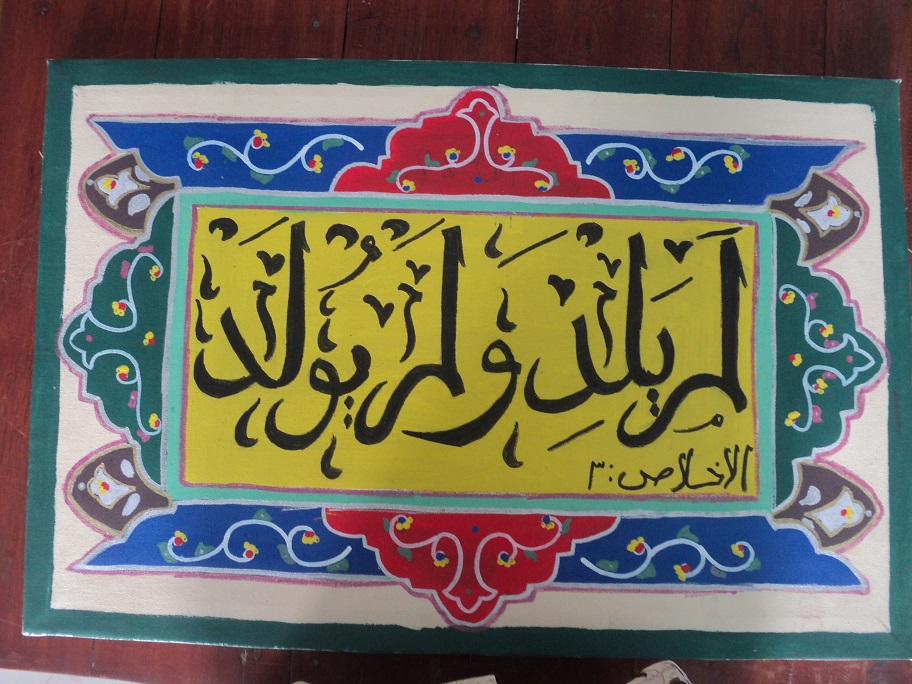 لَمْ يَلِدْ وَلَمْ يُولَدْ
الاخلاص:٣